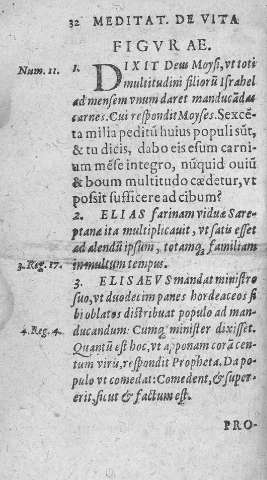 32 MEDITAT. DE VITA
FIGVRAE.
Num. 11. 1. DIXIT Deus Moysi, vt toti
multitudini filiorū Israhel
ad mensem vnum daret manducādas
carnes. Cui respondit Moyses. Sexcē
ta milia peditū huius populi sūt,
& tu dicis, dabo eis esum carni-
um mēse integro, nūquid ouiū
& boum multitudo cædetur, vt
possit sufficere ad cibum?
2. ELIAS farinam viduæ Sare-
ptanæ ita multiplicauit, vt satis esset
ad alendū ipsum, totamq; familiam
3. Reg. 17. in multum tempus.
3. ELISAEVS mandat ministro
suo, vt duodecim panes hordeaceos si
bi oblatos distribuat populo ad man-
4. Reg. 4. ducandum: Cumq; minister dixisset.
Quantū est hoc, vt apponam corā cen-
tum viru, respondit Propheta. Da po
pulo vt comedat: Comedent, & super-
erit, sicut & factum est.
PRO-